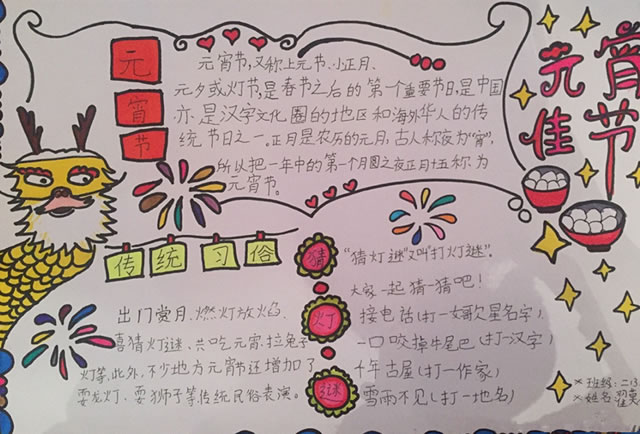 元宵节
元宵节,又称上元节、小正月、
元夕或灯节,是春节之后的第一个重要节日,是中国
亦是汉字文化圈的地区和海外华人的传
统节日之一。正月是农历的元月,古人称夜为“宵”,
所以把一年中的第一个月圆之夜正月十五称为
元宵节。
元宵佳节
传统习俗
出门赏月、燃灯放焰、
喜猜灯谜、共吃元宵、拉兔子
灯等,此外,不少地方元宵节还增加了
耍龙灯、耍狮子等传统民俗表演。
猜灯谜
“猜灯谜”又叫“打灯谜”。
大家一起猜一猜吧!
接电话(打一女歌星名字)
一口咬掉牛尾巴(打一汉字)
千年古屋(打一作家)
雪雨不见(打一地名)
×班级:二13
×姓名:翟